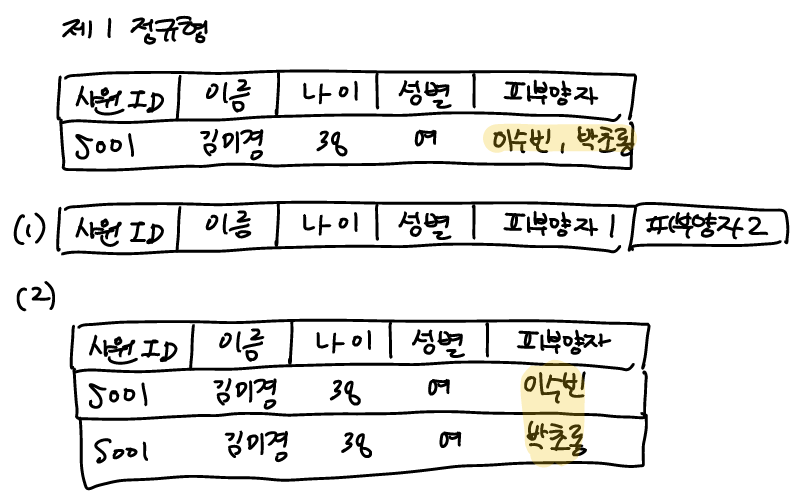 제 1 정규형
사원 ID 이름 나이 성별 피부양자
S001 김미경 38 여 이수빈, 박초롱
(1) 사원 ID 이름 나이 성별 피부양자 1 피부양자 2
(2)
사원 ID 이름 나이 성별 피부양자
S001 김미경 38 여 이수빈
S001 김미경 38 여 박초롱